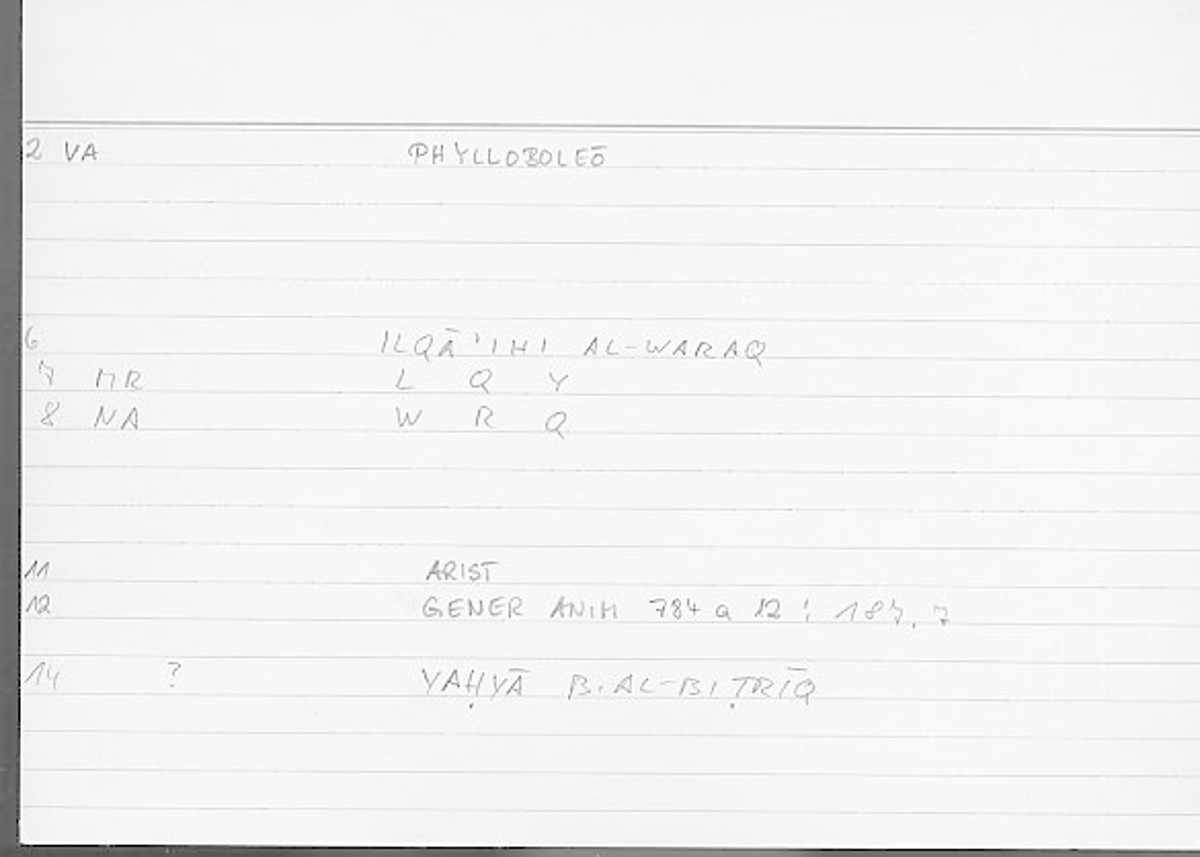 2 VA PHYLLOBOLEŌ
6 ILQĀ'IHI AL-WARAQ
7 MR L Q Y
8 NA W R Q
11 ARIST
12 GENER ANIM 784 a 12 ; 187, 7
14 ? YAḤYĀ B. AL-BIṬRĪQ